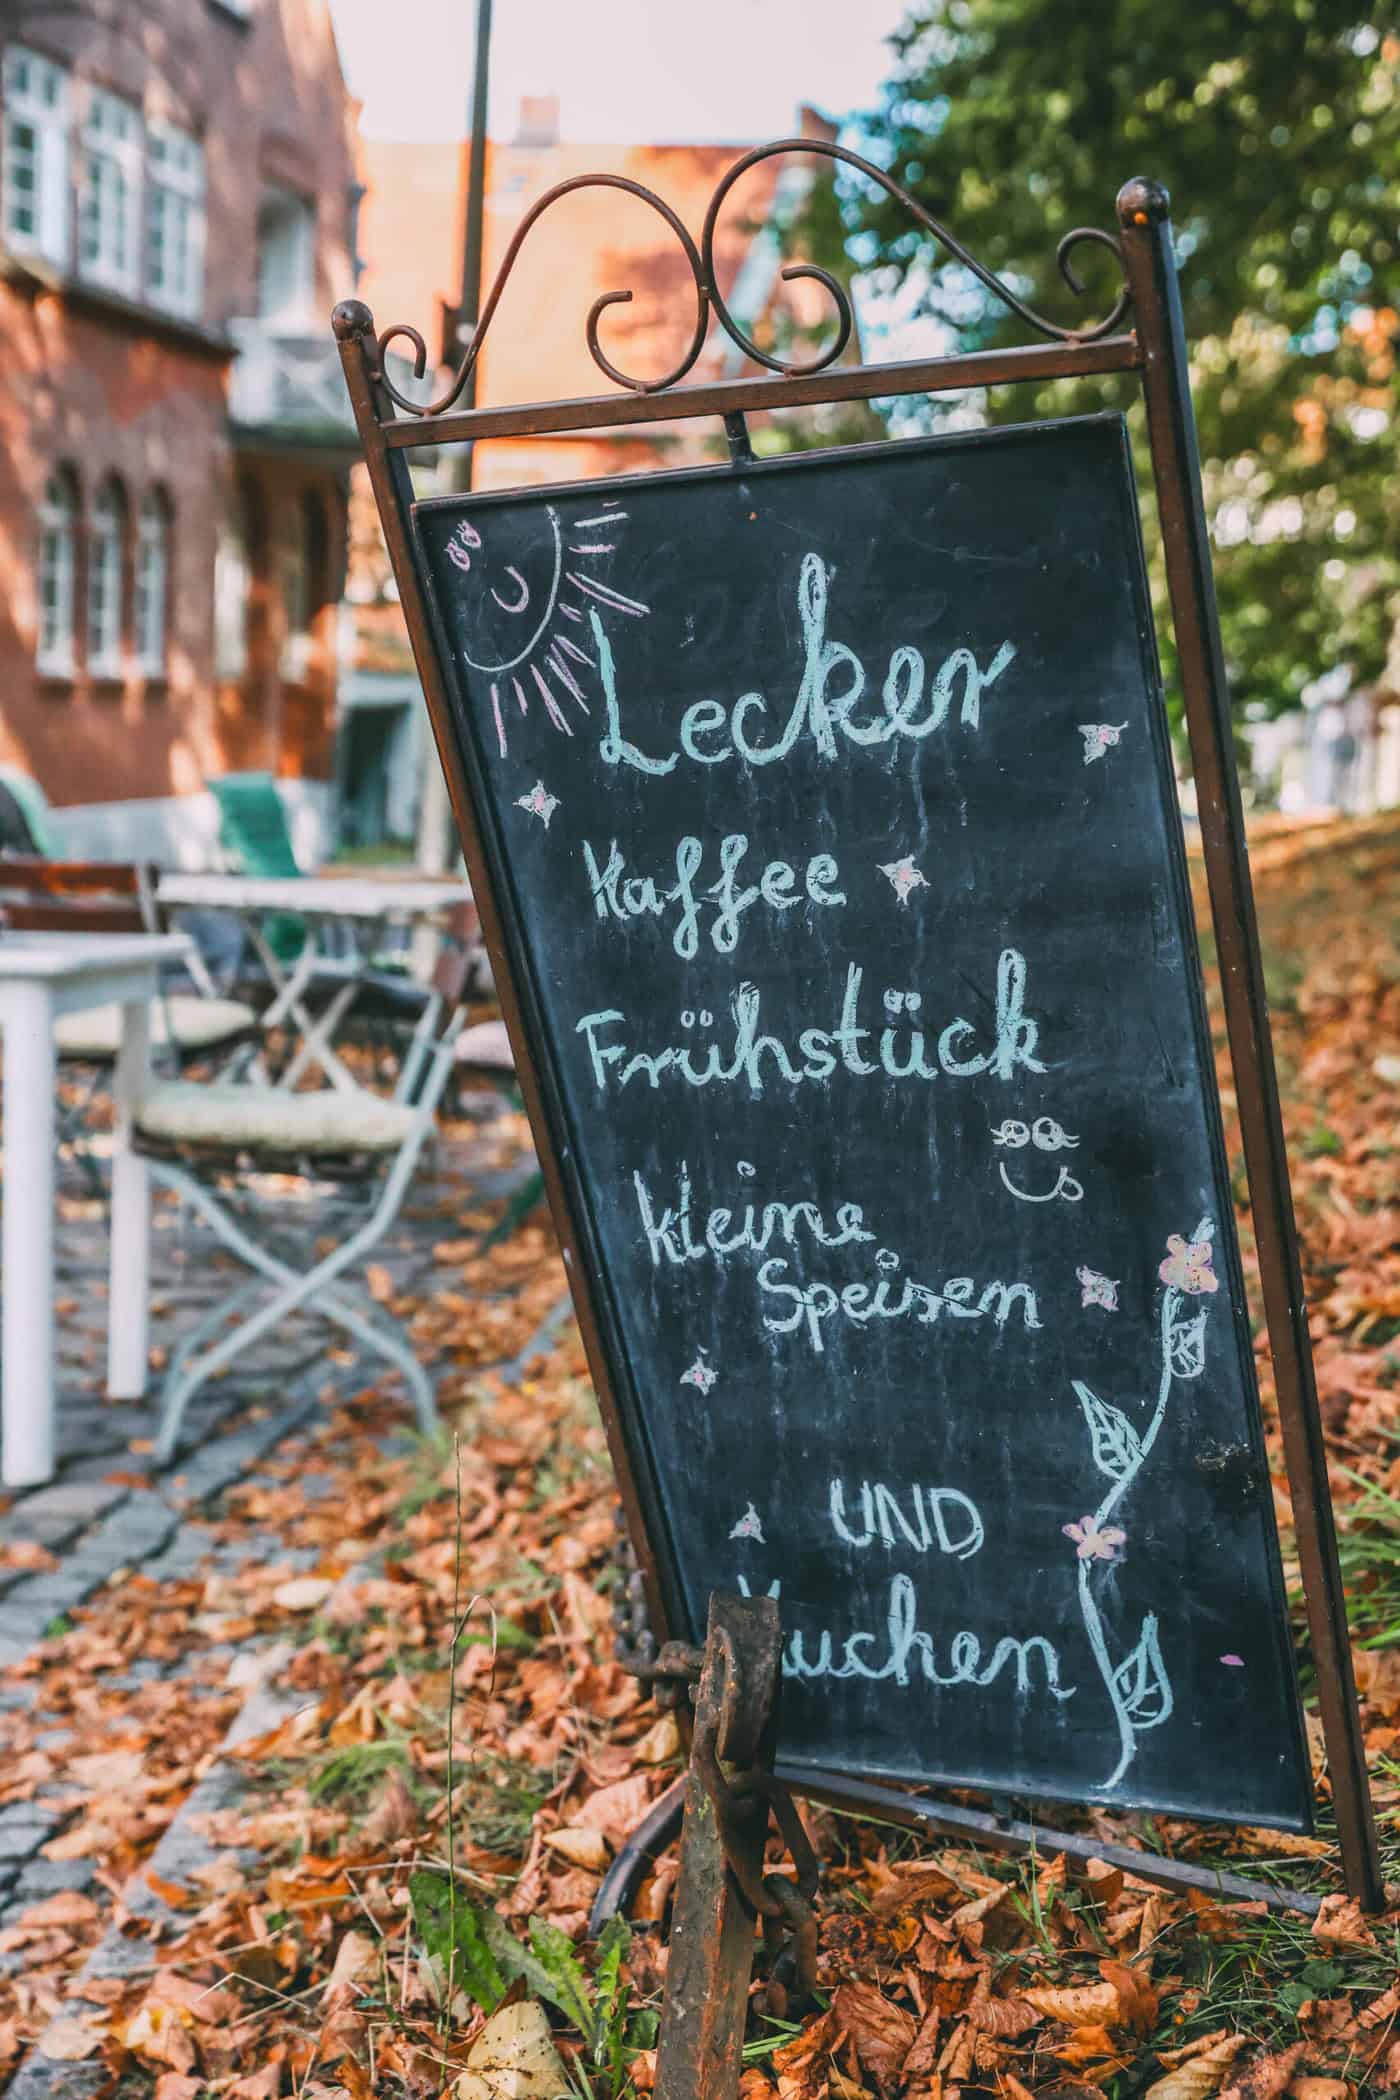 Lecker
Kaffee
Frühstück
kleine
Speisen
UND
Kuchen